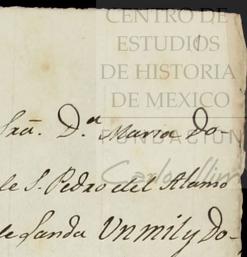 CENTRO DE
ESTUDIOS
DE HISTORIA
DE MEXICO
FUNDACION
Carlos Slim
Sra. D.ª Maria Do-
de S. Pedro del Alamo
de Landa Un mil y Do-